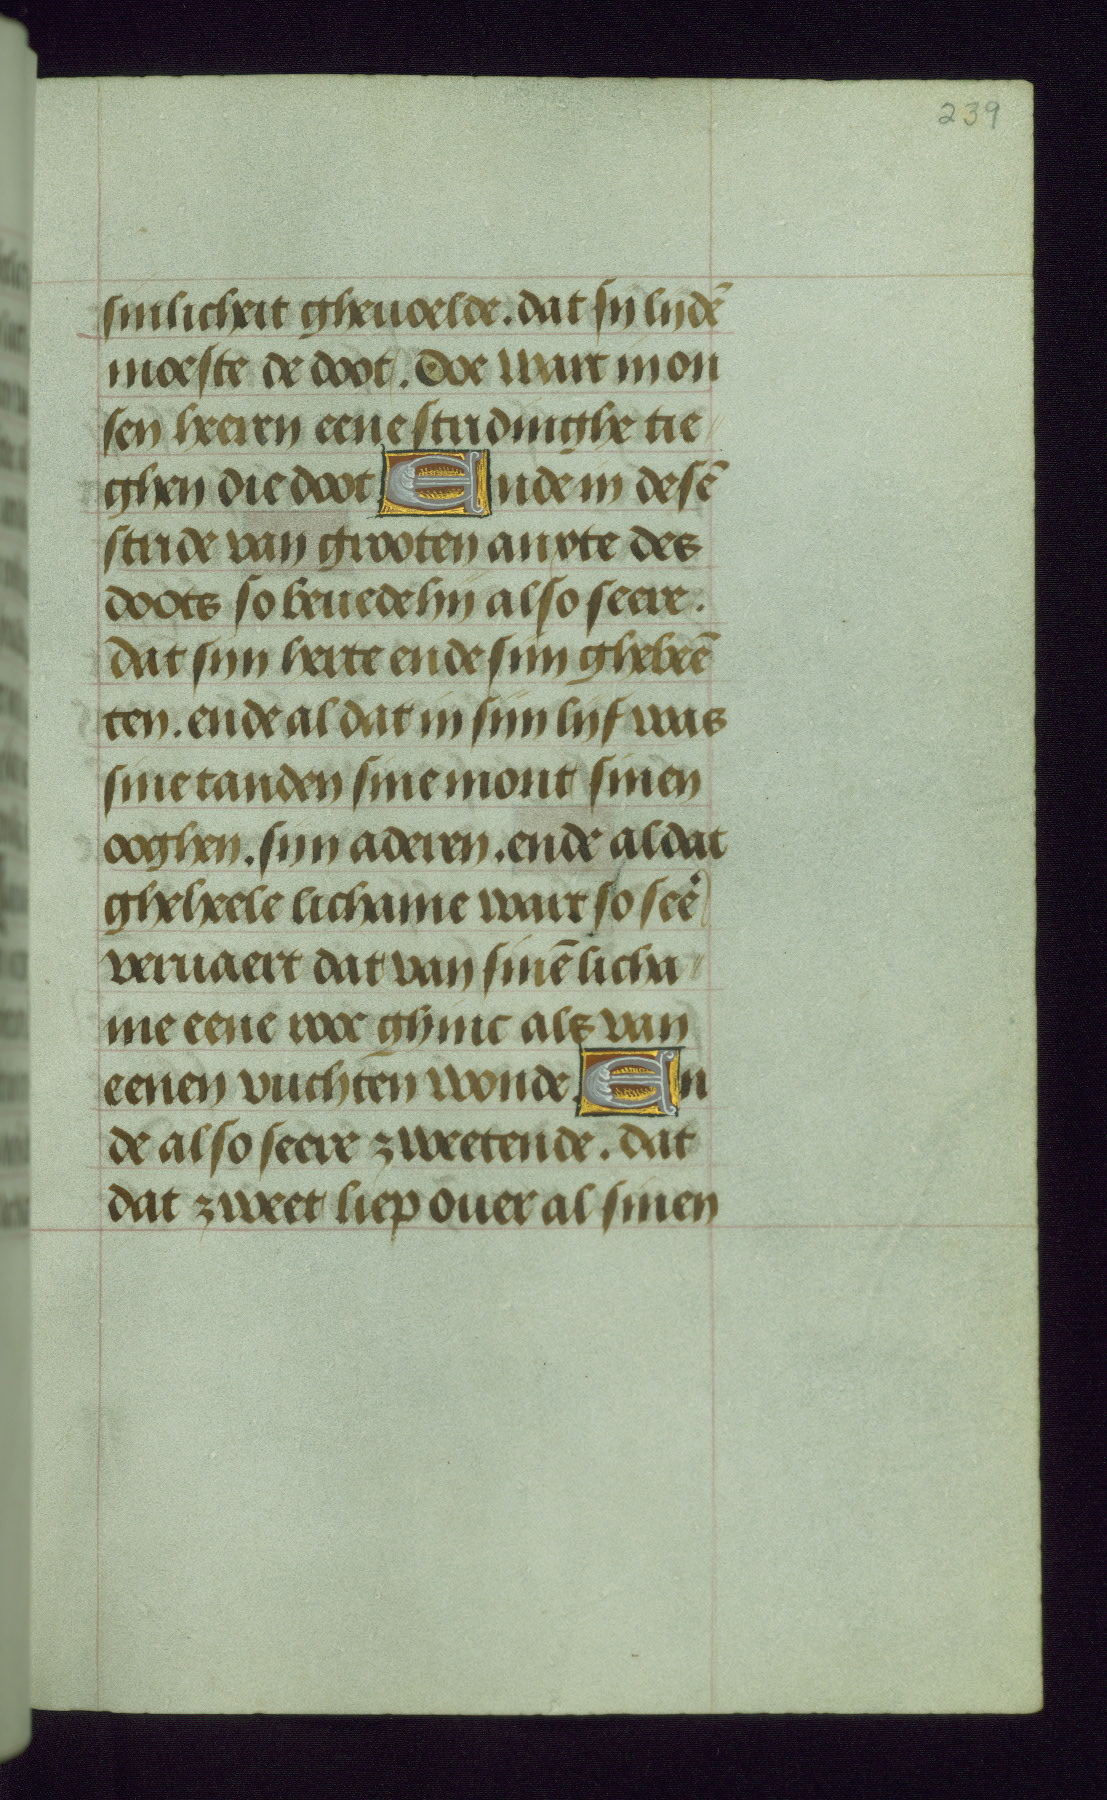 239
sinlicheit gheuoelde. dat sy lydē
moeste de doot. Doe wart in on
sen heeren eene stridinghe tie
ghen die doot Ende in desē
stride van grooten anxte des
doots so beuede hy also seere.
dat syn herte ende syn ghebeē
ten. ende al dat in syn lyf was
sine tanden sine mont sinen
ooghen. syn aderen. ende al dat
gheheele lichame wart so seē
veruaert dat van sinē licha
me eene roox ghinc als van
eenen vuchten wonde. En
de also seere zweetende. dat
dat zweet liep ouer al sinen